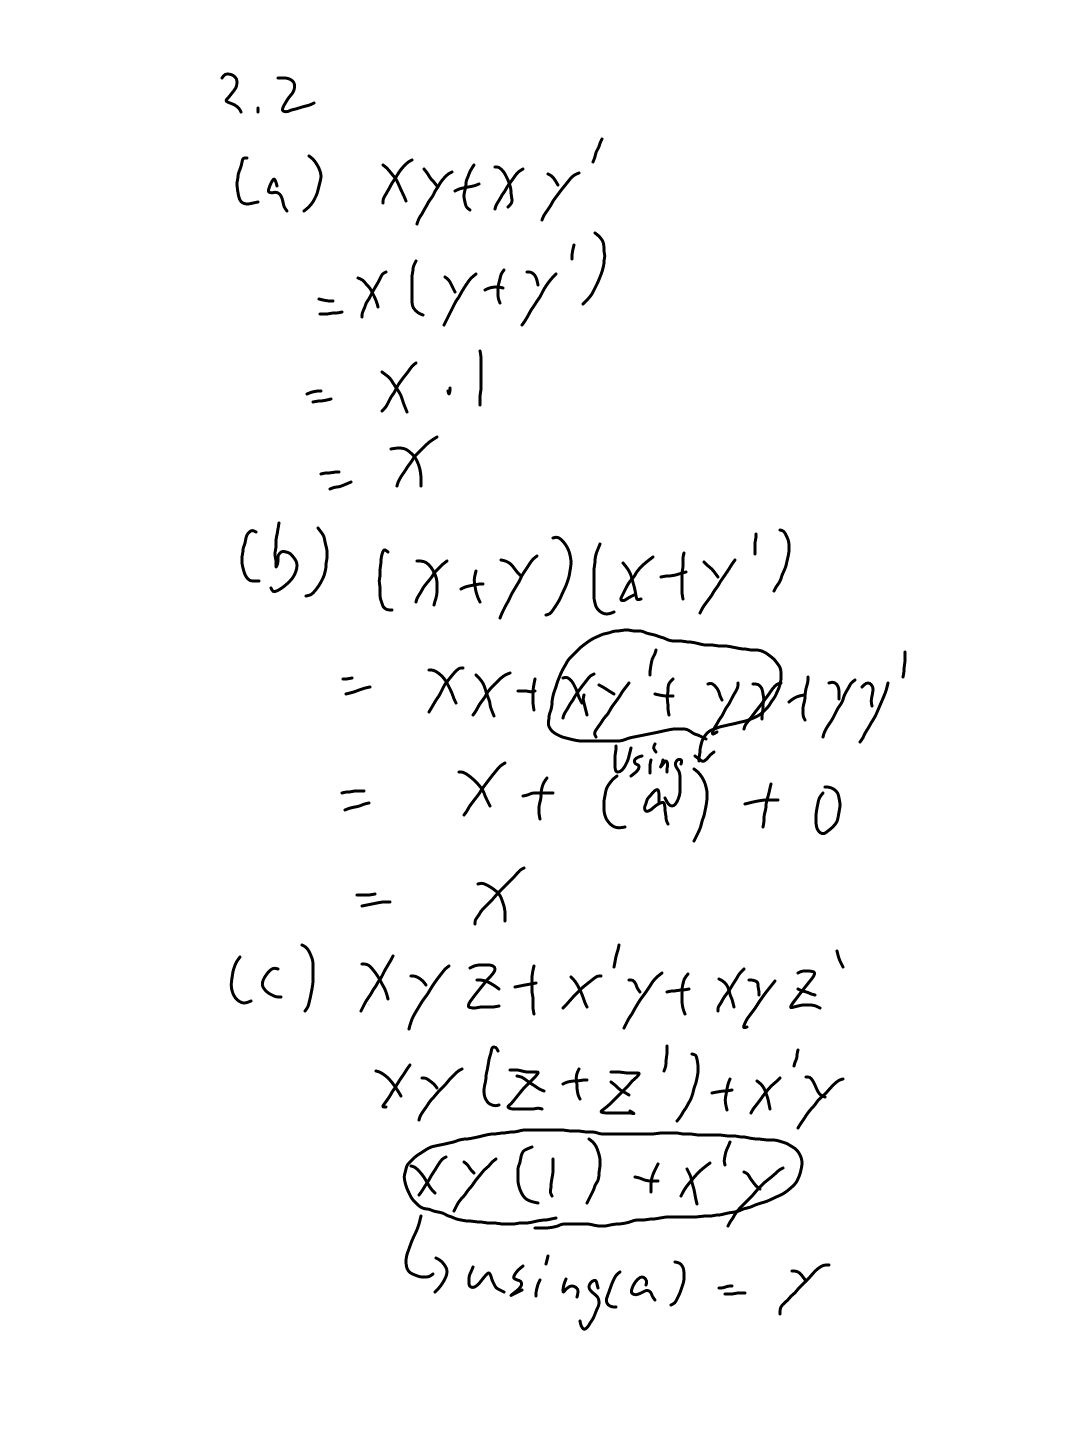 2.2
(a) xy+xy'
=x(y+y')
= x · 1
= x
(b) (x+y)(x+y')
= xx+xy'+yx+yy'
using
= x + (a) + 0
= x
(c) xyz+x'y+xyz'
xy(z+z')+x'y
xy(1)+x'y
↳ using(a) = y